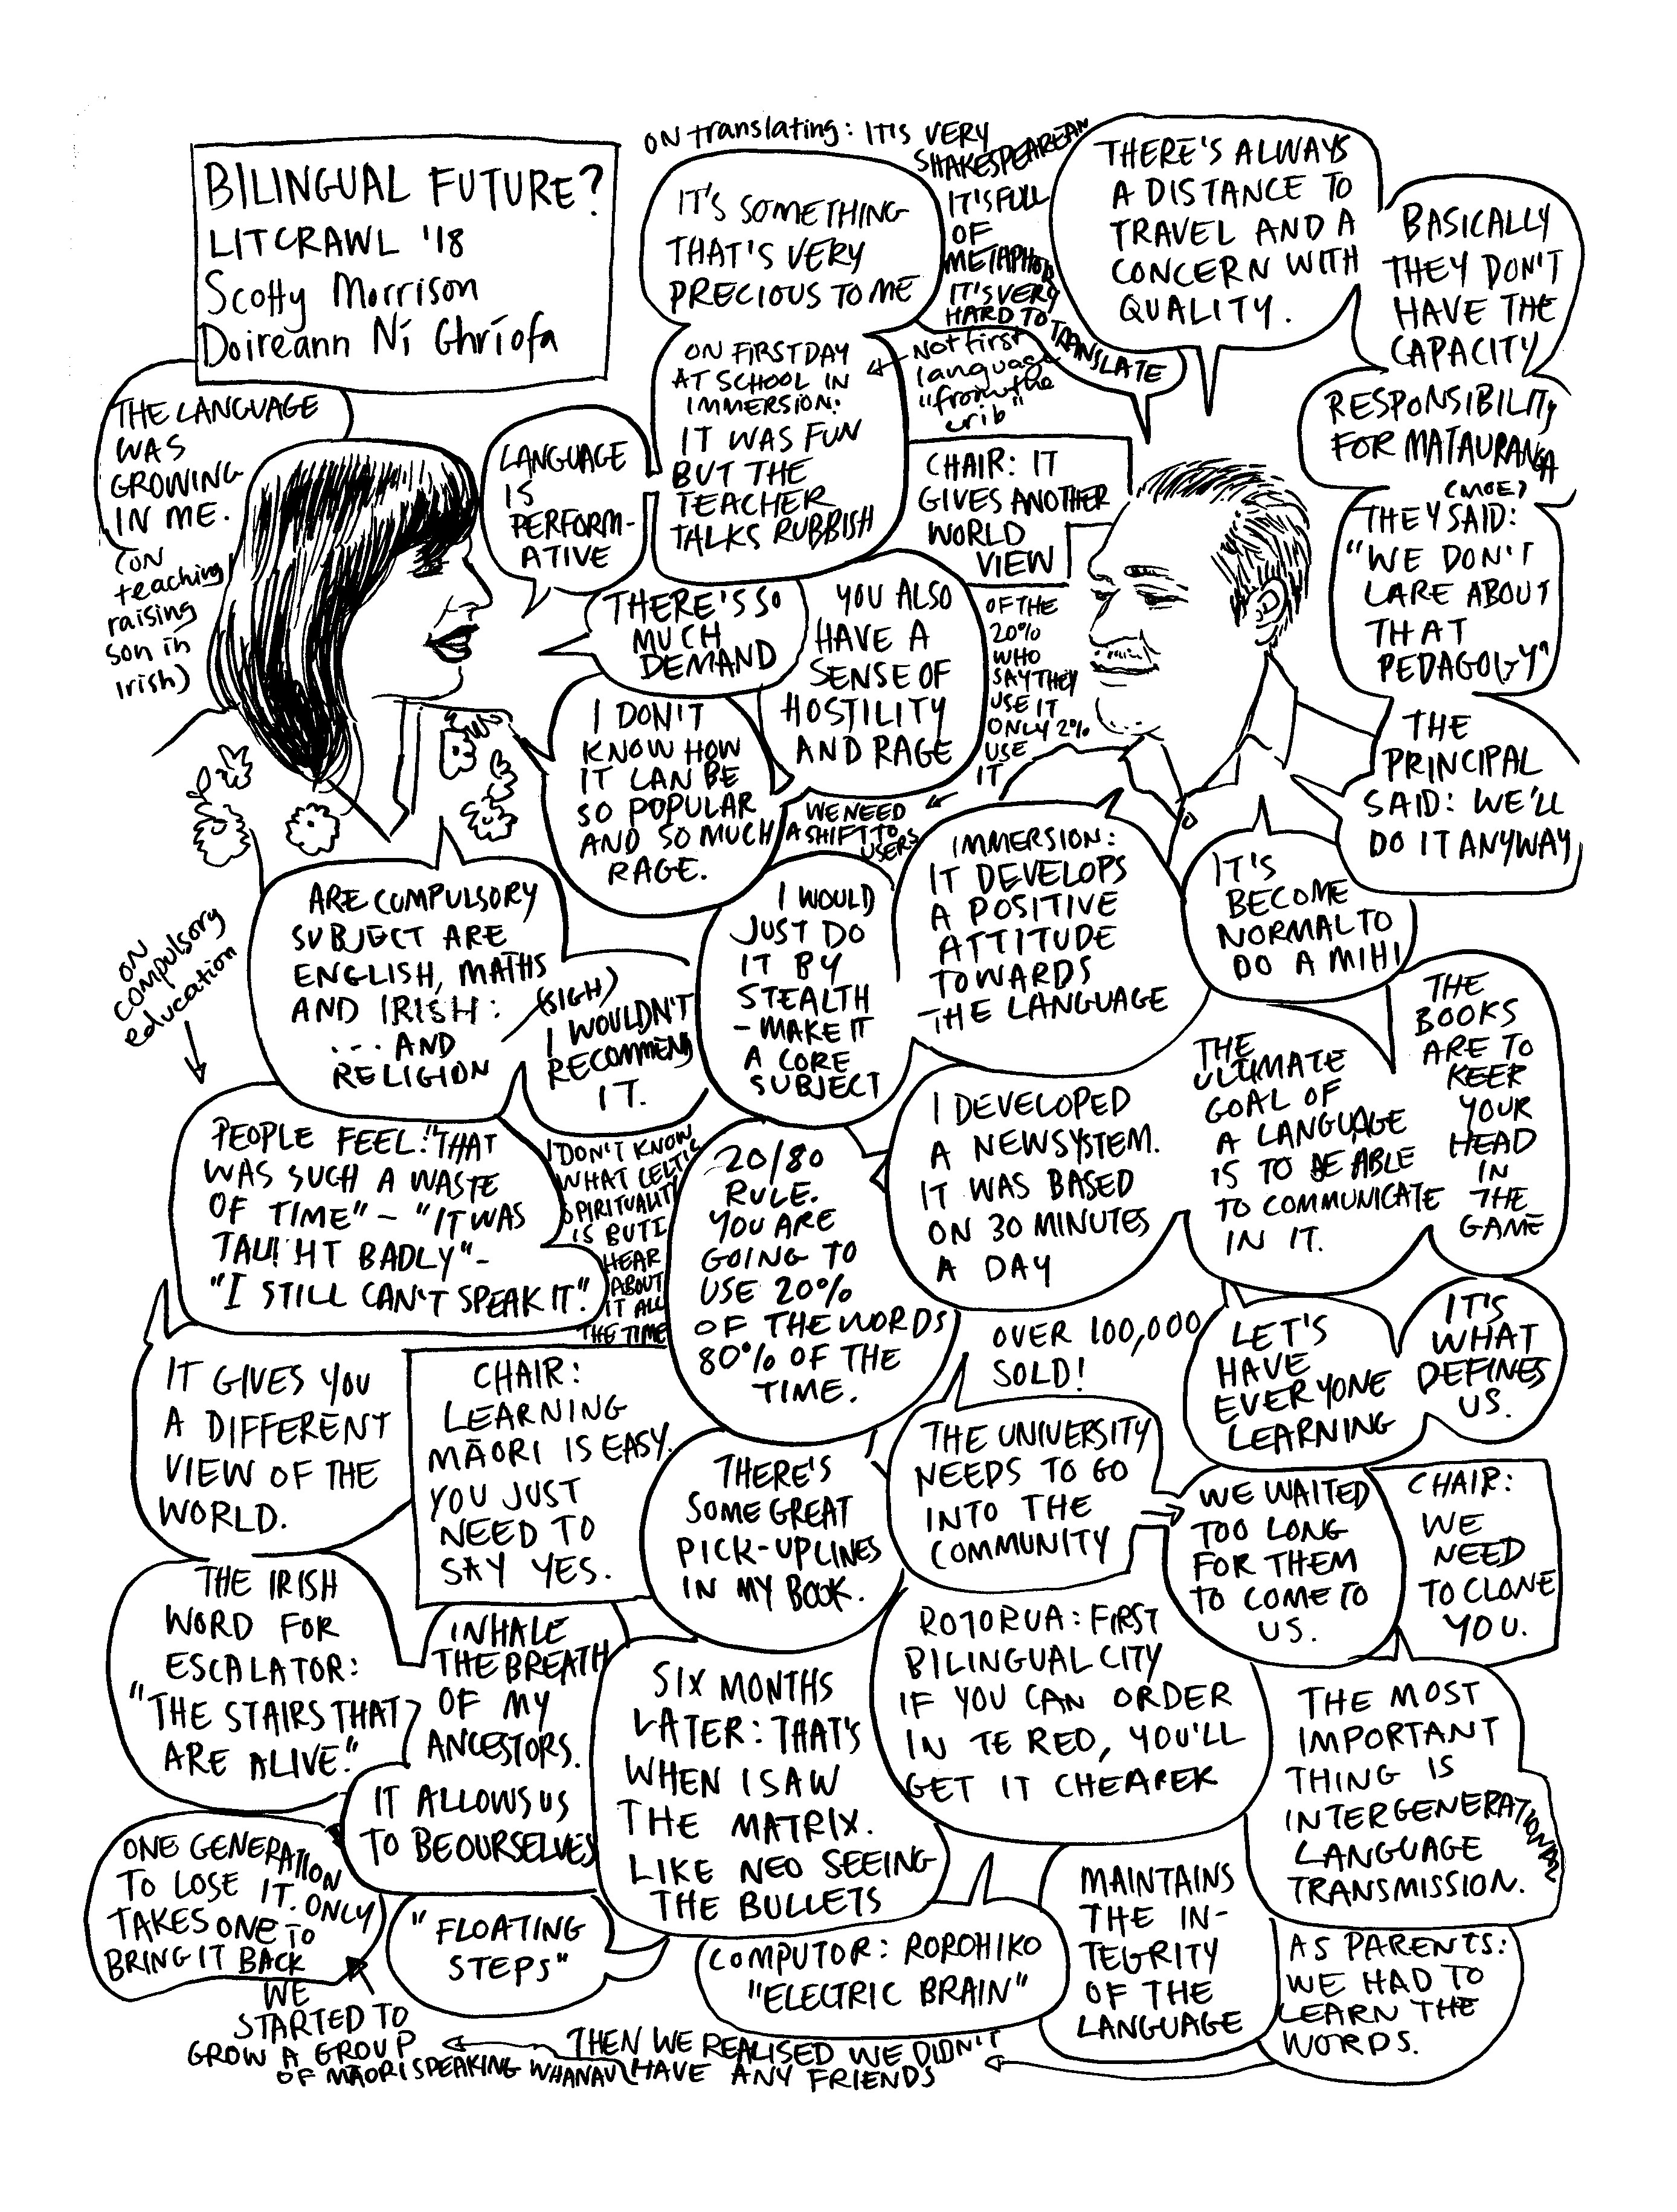 BILINGUAL FUTURE?
LITCRAWL '18
Scotty Morrison
Doireann Ní Ghríofa
THE LANGUAGE
WAS
GROWING
IN ME.
(ON
teaching/
raising
son in
Irish)
LANGUAGE
IS
PERFORM-
ATIVE
IT'S SOMETHING
THAT'S VERY
PRECIOUS TO ME
ON FIRST DAY
AT SCHOOL IN
IMMERSION:
IT WAS FUN
BUT THE
TEACHER
TALKS RUBBISH
Not first
language
"from the
crib"
ON translating: IT'S VERY
SHAKESPEAREAN
IT'S FULL
OF
METAPHOR
IT'S VERY
HARD TO
TRANSLATE
THERE'S ALWAYS
A DISTANCE TO
TRAVEL AND A
CONCERN WITH
QUALITY.
BASICALLY
THEY DON'T
HAVE THE
CAPACITY
RESPONSIBILITY
FOR MATAURANGA
(MOE)
THEY SAID:
"WE DON'T
CARE ABOUT
THAT
PEDAGOGY"
THE
PRINCIPAL
SAID: WE'LL
DO IT ANYWAY
CHAIR: IT
GIVES ANOTHER
WORLD
VIEW
THERE'S SO
MUCH
DEMAND
YOU ALSO
HAVE A
SENSE OF
HOSTILITY
AND RAGE
I DON'T
KNOW HOW
IT CAN BE
SO POPULAR
AND SO MUCH
RAGE.
OF THE
20%
WHO
SAY THEY
USE IT
ONLY 2%
USE
IT
WE NEED
A SHIFT TO
USERS
ARE COMPULSORY
SUBJECT ARE
ENGLISH, MATHS
AND IRISH:
... AND
RELIGION
(SIGH)
I WOULDN'T
RECOMMEND
IT.
I WOULD
JUST DO
IT BY
STEALTH
- MAKE IT
A CORE
SUBJECT
IMMERSION:
IT DEVELOPS
A POSITIVE
ATTITUDE
TOWARDS
THE LANGUAGE
IT'S
BECOME
NORMAL TO
DO A MIHI
THE
BOOKS
ARE TO
KEEP
YOUR
HEAD
IN
THE
GAME
THE
ULTIMATE
GOAL OF
A LANGUAGE
IS TO BE ABLE
TO COMMUNICATE
IN IT.
I DEVELOPED
A NEW SYSTEM.
IT WAS BASED
ON 30 MINUTES
A DAY
ON
compulsory
education
PEOPLE FEEL: "THAT
WAS SUCH A WASTE
OF TIME" - "IT WAS
TAUGHT BADLY" -
"I STILL CAN'T SPEAK IT."
I DON'T KNOW
WHAT CELTIC
SPIRITUALITY
IS BUT I
HEAR
ABOUT
IT ALL
THE TIME
20/80
RULE.
YOU ARE
GOING TO
USE 20%
OF THE WORDS
80% OF THE
TIME.
OVER 100,000
SOLD!
LET'S
HAVE
EVERYONE
LEARNING
IT'S
WHAT
DEFINES
US.
IT GIVES YOU
A DIFFERENT
VIEW OF THE
WORLD.
CHAIR:
LEARNING
MĀORI IS EASY.
YOU JUST
NEED TO
SAY YES.
THERE'S
SOME GREAT
PICK-UP LINES
IN MY BOOK.
THE UNIVERSITY
NEEDS TO GO
INTO THE
COMMUNITY
WE WAITED
TOO LONG
FOR THEM
TO COME TO
US.
CHAIR:
WE
NEED
TO CLONE
YOU.
THE IRISH
WORD FOR
ESCALATOR:
"THE STAIRS THAT
ARE ALIVE."
INHALE
THE BREATH
OF MY
ANCESTORS.
IT ALLOWS US
TO BE OURSELVES
SIX MONTHS
LATER: THAT'S
WHEN I SAW
THE MATRIX.
LIKE NEO SEEING
THE BULLETS
ROTORUA: FIRST
BILINGUAL CITY
IF YOU CAN ORDER
IN TE REO, YOU'LL
GET IT CHEAPER
THE MOST
IMPORTANT
THING IS
INTERGENERATIONAL
LANGUAGE
TRANSMISSION.
ONE GENERATION
TO LOSE IT. ONLY
TAKES ONE TO
BRING IT BACK
"FLOATING
STEPS"
COMPUTOR: ROROHIKO
"ELECTRIC BRAIN"
MAINTAINS
THE IN-
TEGRITY
OF THE
LANGUAGE
AS PARENTS:
WE HAD TO
LEARN THE
WORDS.
THEN WE REALISED WE DIDN'T
HAVE ANY FRIENDS
WE
STARTED TO
GROW A GROUP
OF MĀORI SPEAKING WHANAU